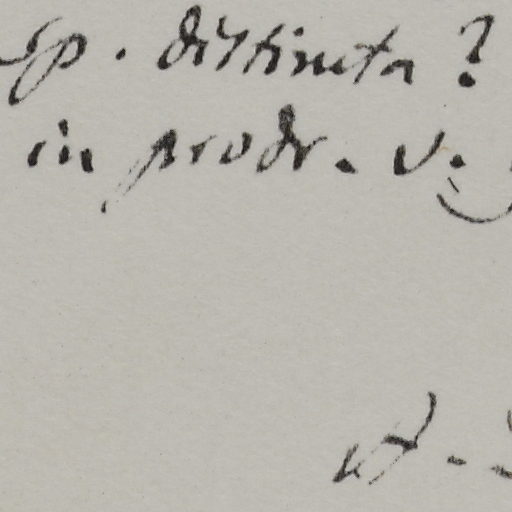 sp. distincta?
in prodr. v.
A.